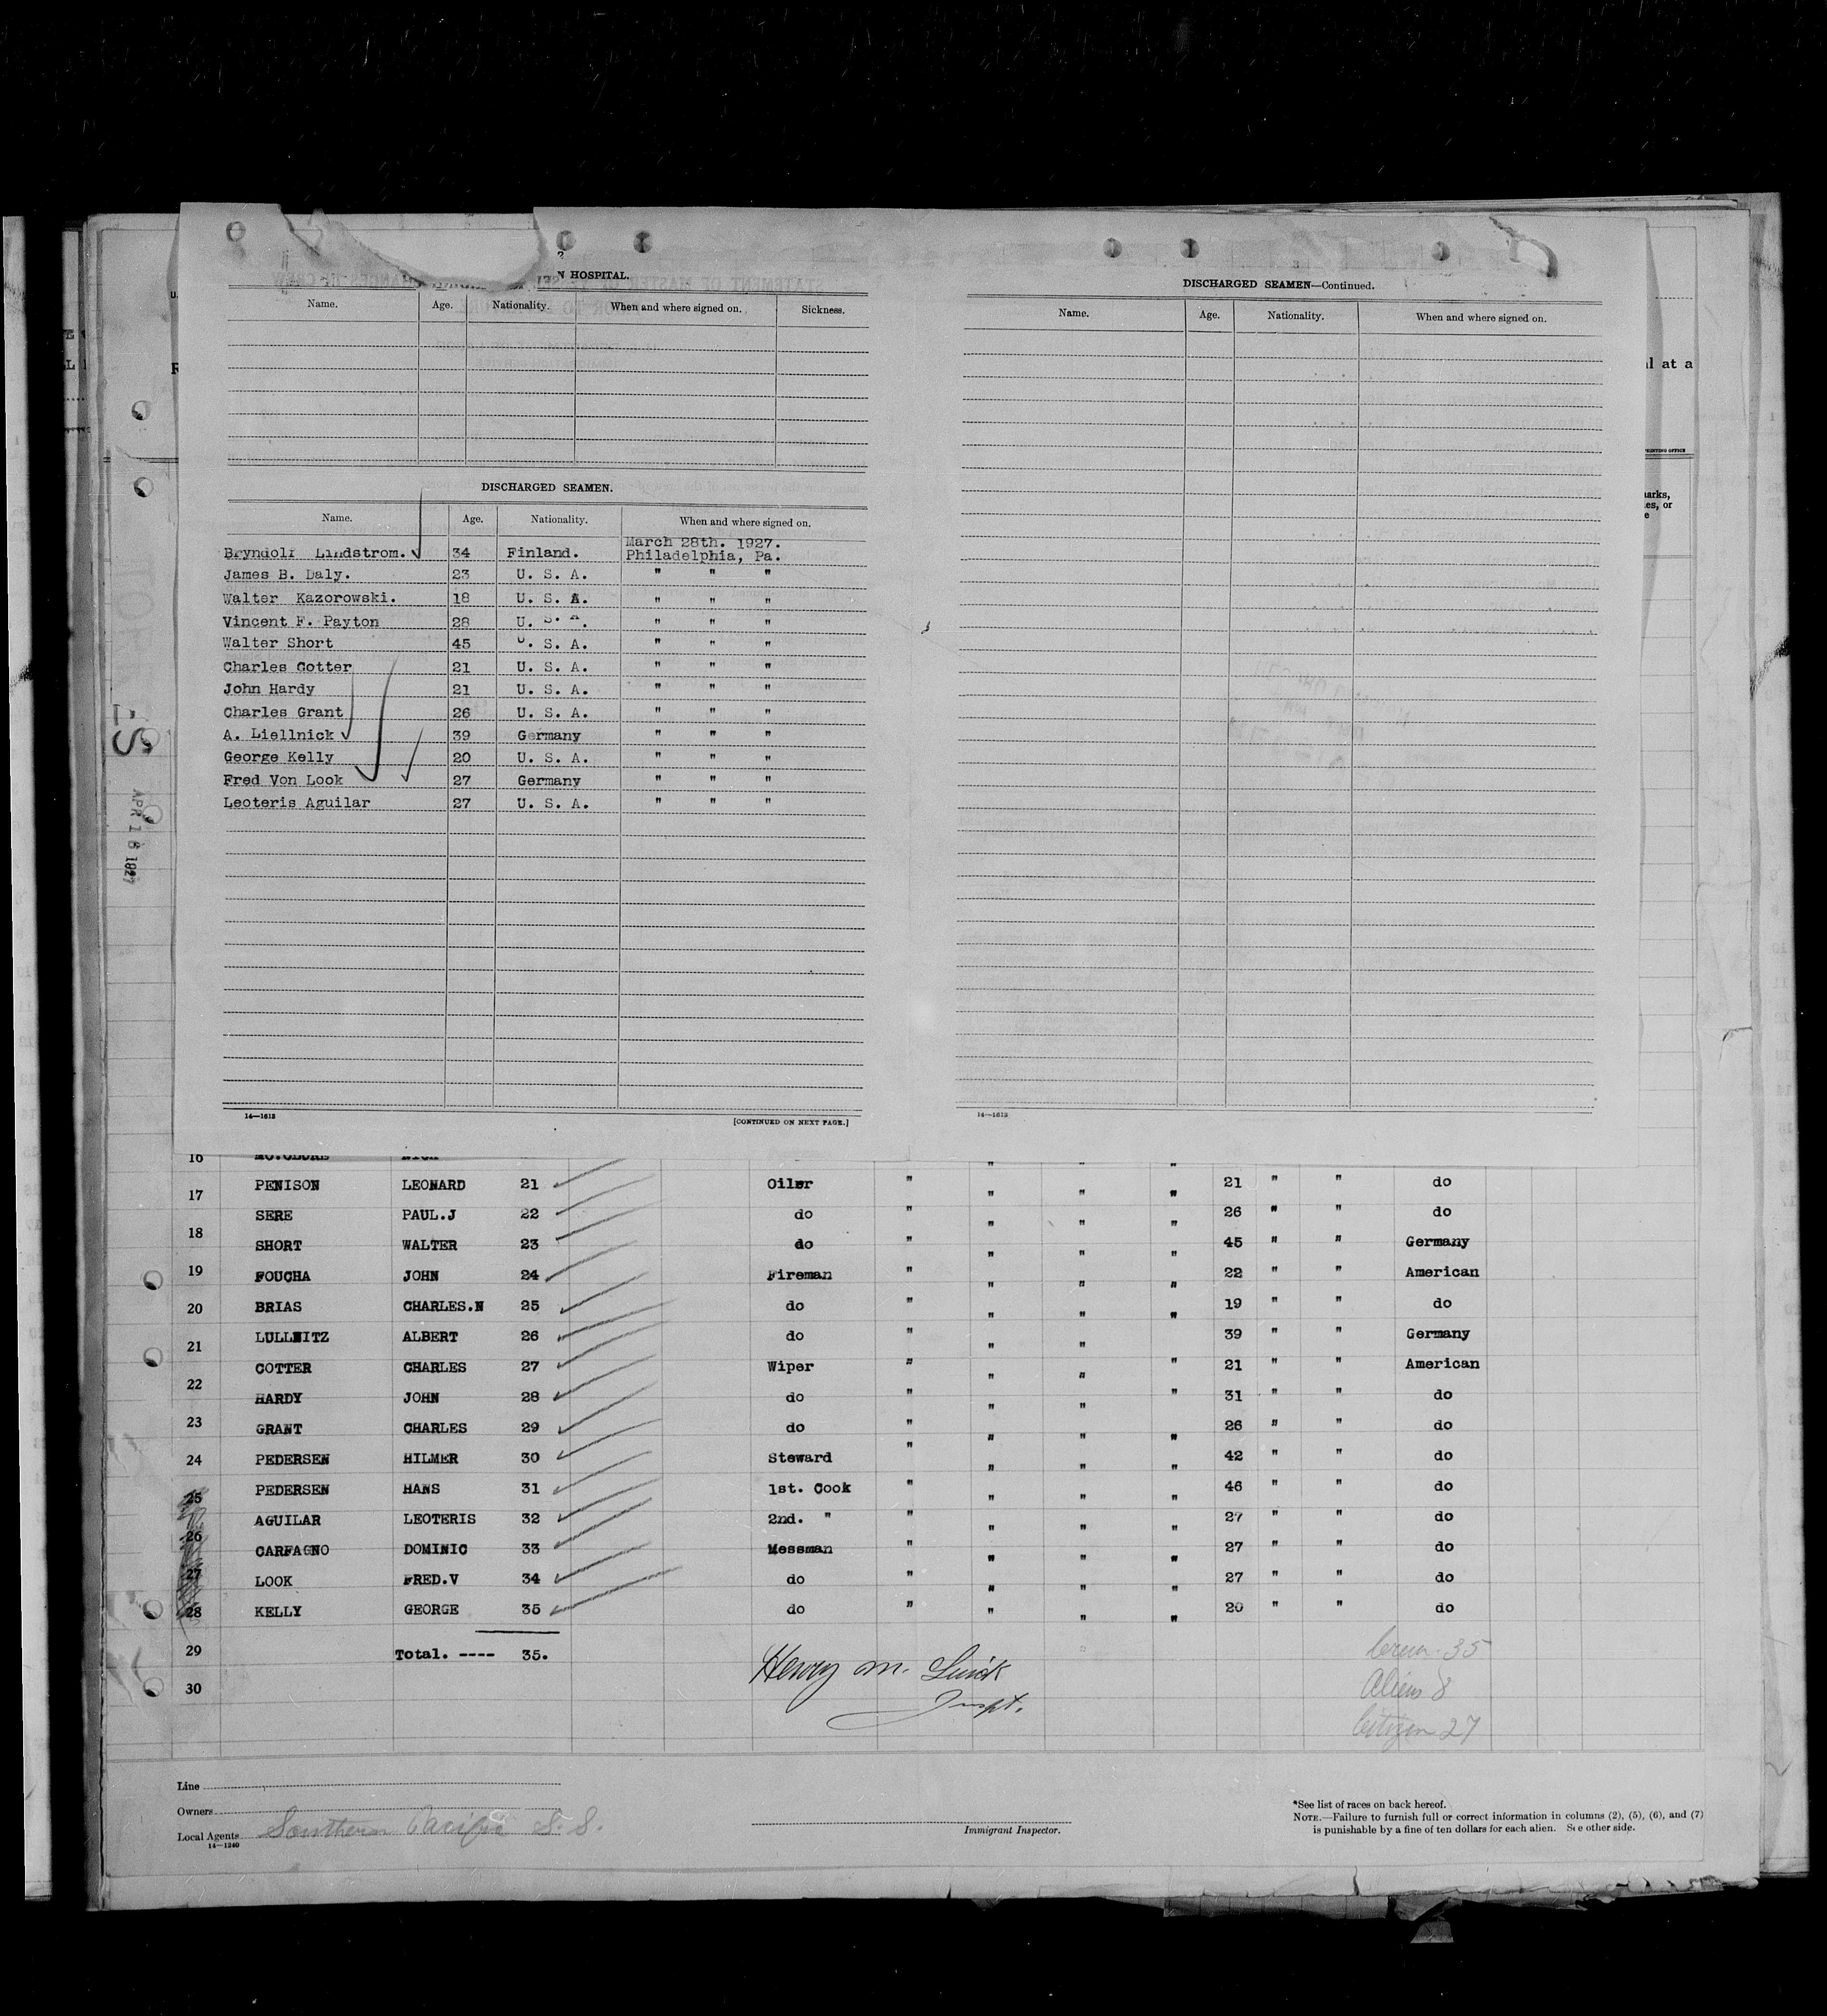 N HOSPITAL.
Name. Age. Nationality. When and where signed on. Sickness.
DISCHARGED SEAMEN.
Name. Age. Nationality. When and where signed on.
March 28th. 1927.
Bryndolf Lindstrom. 34 Finland. Philadelphia, Pa.
James B. Daly. 23 U. S. A. " " "
Walter Kazorowski. 18 U. S. A. " " "
Vincent F. Payton 28 U. S. A. " " "
Walter Short 45 U. S. A. " " "
Charles Cotter 21 U. S. A. " " "
John Hardy 21 U. S. A. " " "
Charles Grant 26 U. S. A. " " "
A. Liellnick 39 Germany " " "
George Kelly 20 U. S. A. " " "
Fred Von Look 27 Germany " " "
Leoteris Aguilar 27 U. S. A. " " "
14—1613 [CONTINUED ON NEXT PAGE.]
DISCHARGED SEAMEN—Continued.
Name. Age. Nationality. When and where signed on.
14—1613
l at a
PRINTING OFFICE
APR 16 1927
16
17 PENISON LEONARD 21 Oiler " " " " 21 " " do
18 SERE PAUL.J 22 do " " " " 26 " " do
SHORT WALTER 23 do " " " " 45 " " Germany
19 FOUCHA JOHN 24 Fireman " " " " 22 " " American
20 BRIAS CHARLES.N 25 do " " " " 19 " " do
21 LULLNITZ ALBERT 26 do " " " 39 " " Germany
COTTER CHARLES 27 Wiper " " " " 21 " " American
22 HARDY JOHN 28 do " " " " 31 " " do
23 GRANT CHARLES 29 do " " " " 26 " " do
24 PEDERSEN HILMER 30 Steward " " " " 42 " " do
25 PEDERSEN HANS 31 1st. Cook " " " " 46 " " do
AGUILAR LEOTERIS 32 2nd. " " " " " 27 " " do
26 CARFAGNO DOMINIC 33 Messman " " " " 27 " " do
27 LOOK FRED.V 34 do " " " " 27 " " do
28 KELLY GEORGE 35 do " " " " 20 " " do
29 Total. ---- 35.
30
Henry M.
Inspt.
Crew 35
Aliens 8
Citizen 27
Line
Owners
Local Agents Southern Pacific S. S.
14—1240
Immigrant Inspector.
*See list of races on back hereof.
NOTE.—Failure to furnish full or correct information in columns (2), (5), (6), and (7)
is punishable by a fine of ten dollars for each alien. See other side.